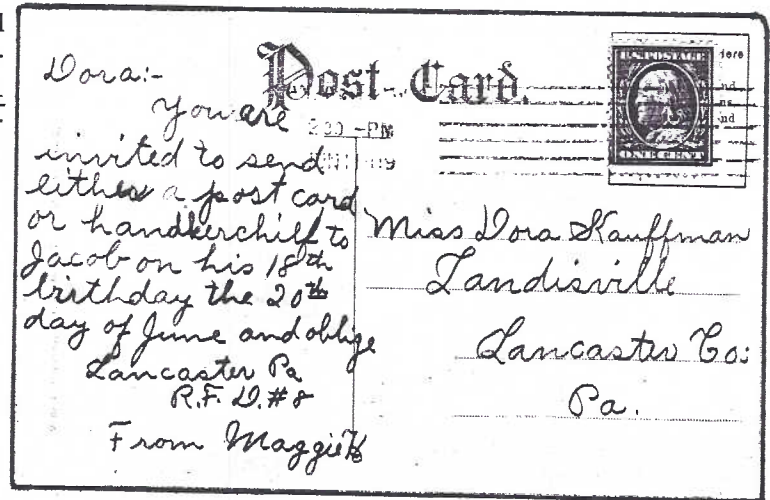 Post Card.
U.S. POSTAGE
ONE CENT
2 30 -PM
Dora:-
You are
invited to send
either a post card
or handkerchief to
Jacob on his 18th
birthday the 20th
day of June and oblige
Lancaster Pa
R.F.D. #8
From Maggie
Miss Dora Kauffman
Landisville
Lancaster Co:
Pa.